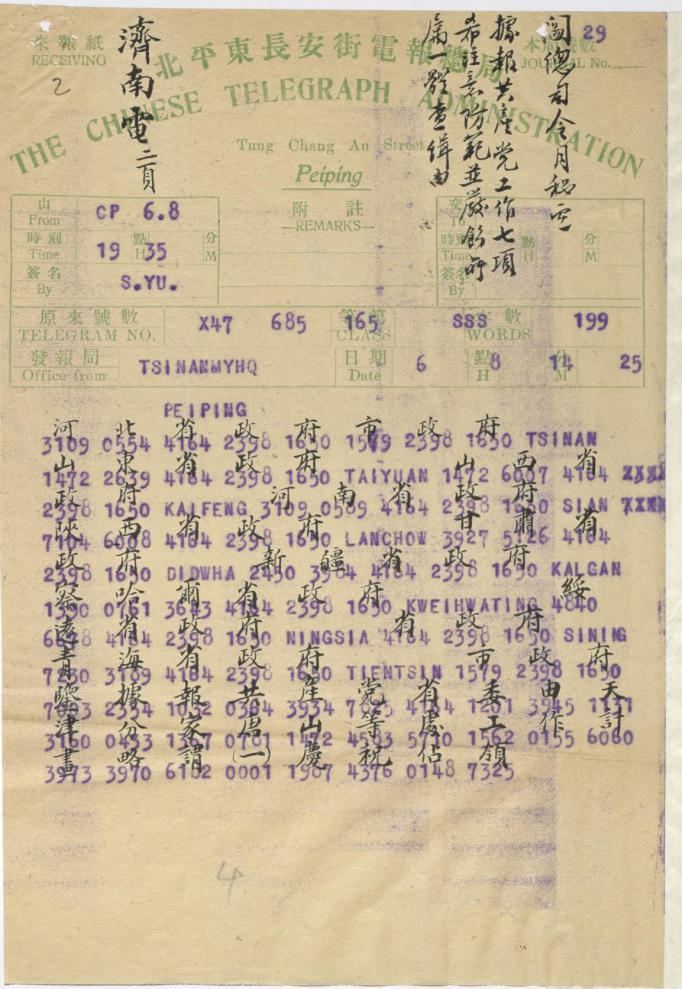 29
閻總司令月秘电
據報共產党工作七項
希註意防範並嚴飭所
屬一體查緝由
濟南電二頁
來報紙
RECEIVING
2
北平東長安街電報總局
本局號數
JOURNAL No.
THE CHINESE TELEGRAPH ADMINISTRATION
Tung Chang An Street
Peiping
由
From
CP 6.8
附註
—REMARKS—
交
To
時刻
Time
19
點
H
35
分
M
時刻
Time
點
H
分
M
簽名
By
S.YU.
簽名
By
原來號數
TELEGRAM NO.
X47 685 165
等第
CLASS
SSS
字數
WORDS
199
發報局
Office from
TSINANMYHQ
日期
Date
6
點
H
8
14
M
25
PEIPING
河北省政府市政府
3109 0554 4164 2398 1650 1579 2398 1650 TSINAN
山東省政府 山西省
1472 2639 4164 2398 1650 TAIYUAN 1472 6007 4164
政府 河南省政府
2398 1650 KAIFENG 3109 0589 4164 2398 1650 SIAN
陝西省政府 甘肅省
7104 6008 4164 2398 1650 LANCHOW 3927 5126 4164
政府 新疆省政府
2398 1650 DIDWHA 2450 3984 4164 2398 1650 KALGAN
察哈爾省政府 綏
1390 0761 3643 4164 2398 1650 KWEIHWATING 4840
遠省政府 省政府
6678 4164 2398 1650 NINGSIA 4164 2398 1650 SINING
青海省政府 市政府
7230 3189 4164 2398 1650 TIENTSIN 1579 2398 1650
鑒據報共產党省委由天
津分家唐山等處工作計
3160 0433 1367 0781 1472 4583 5710 1562 0155 6060
畫略謂(一)慶祝佔領
3973 3970 6182 0001 1987 4376 0148 7325
4